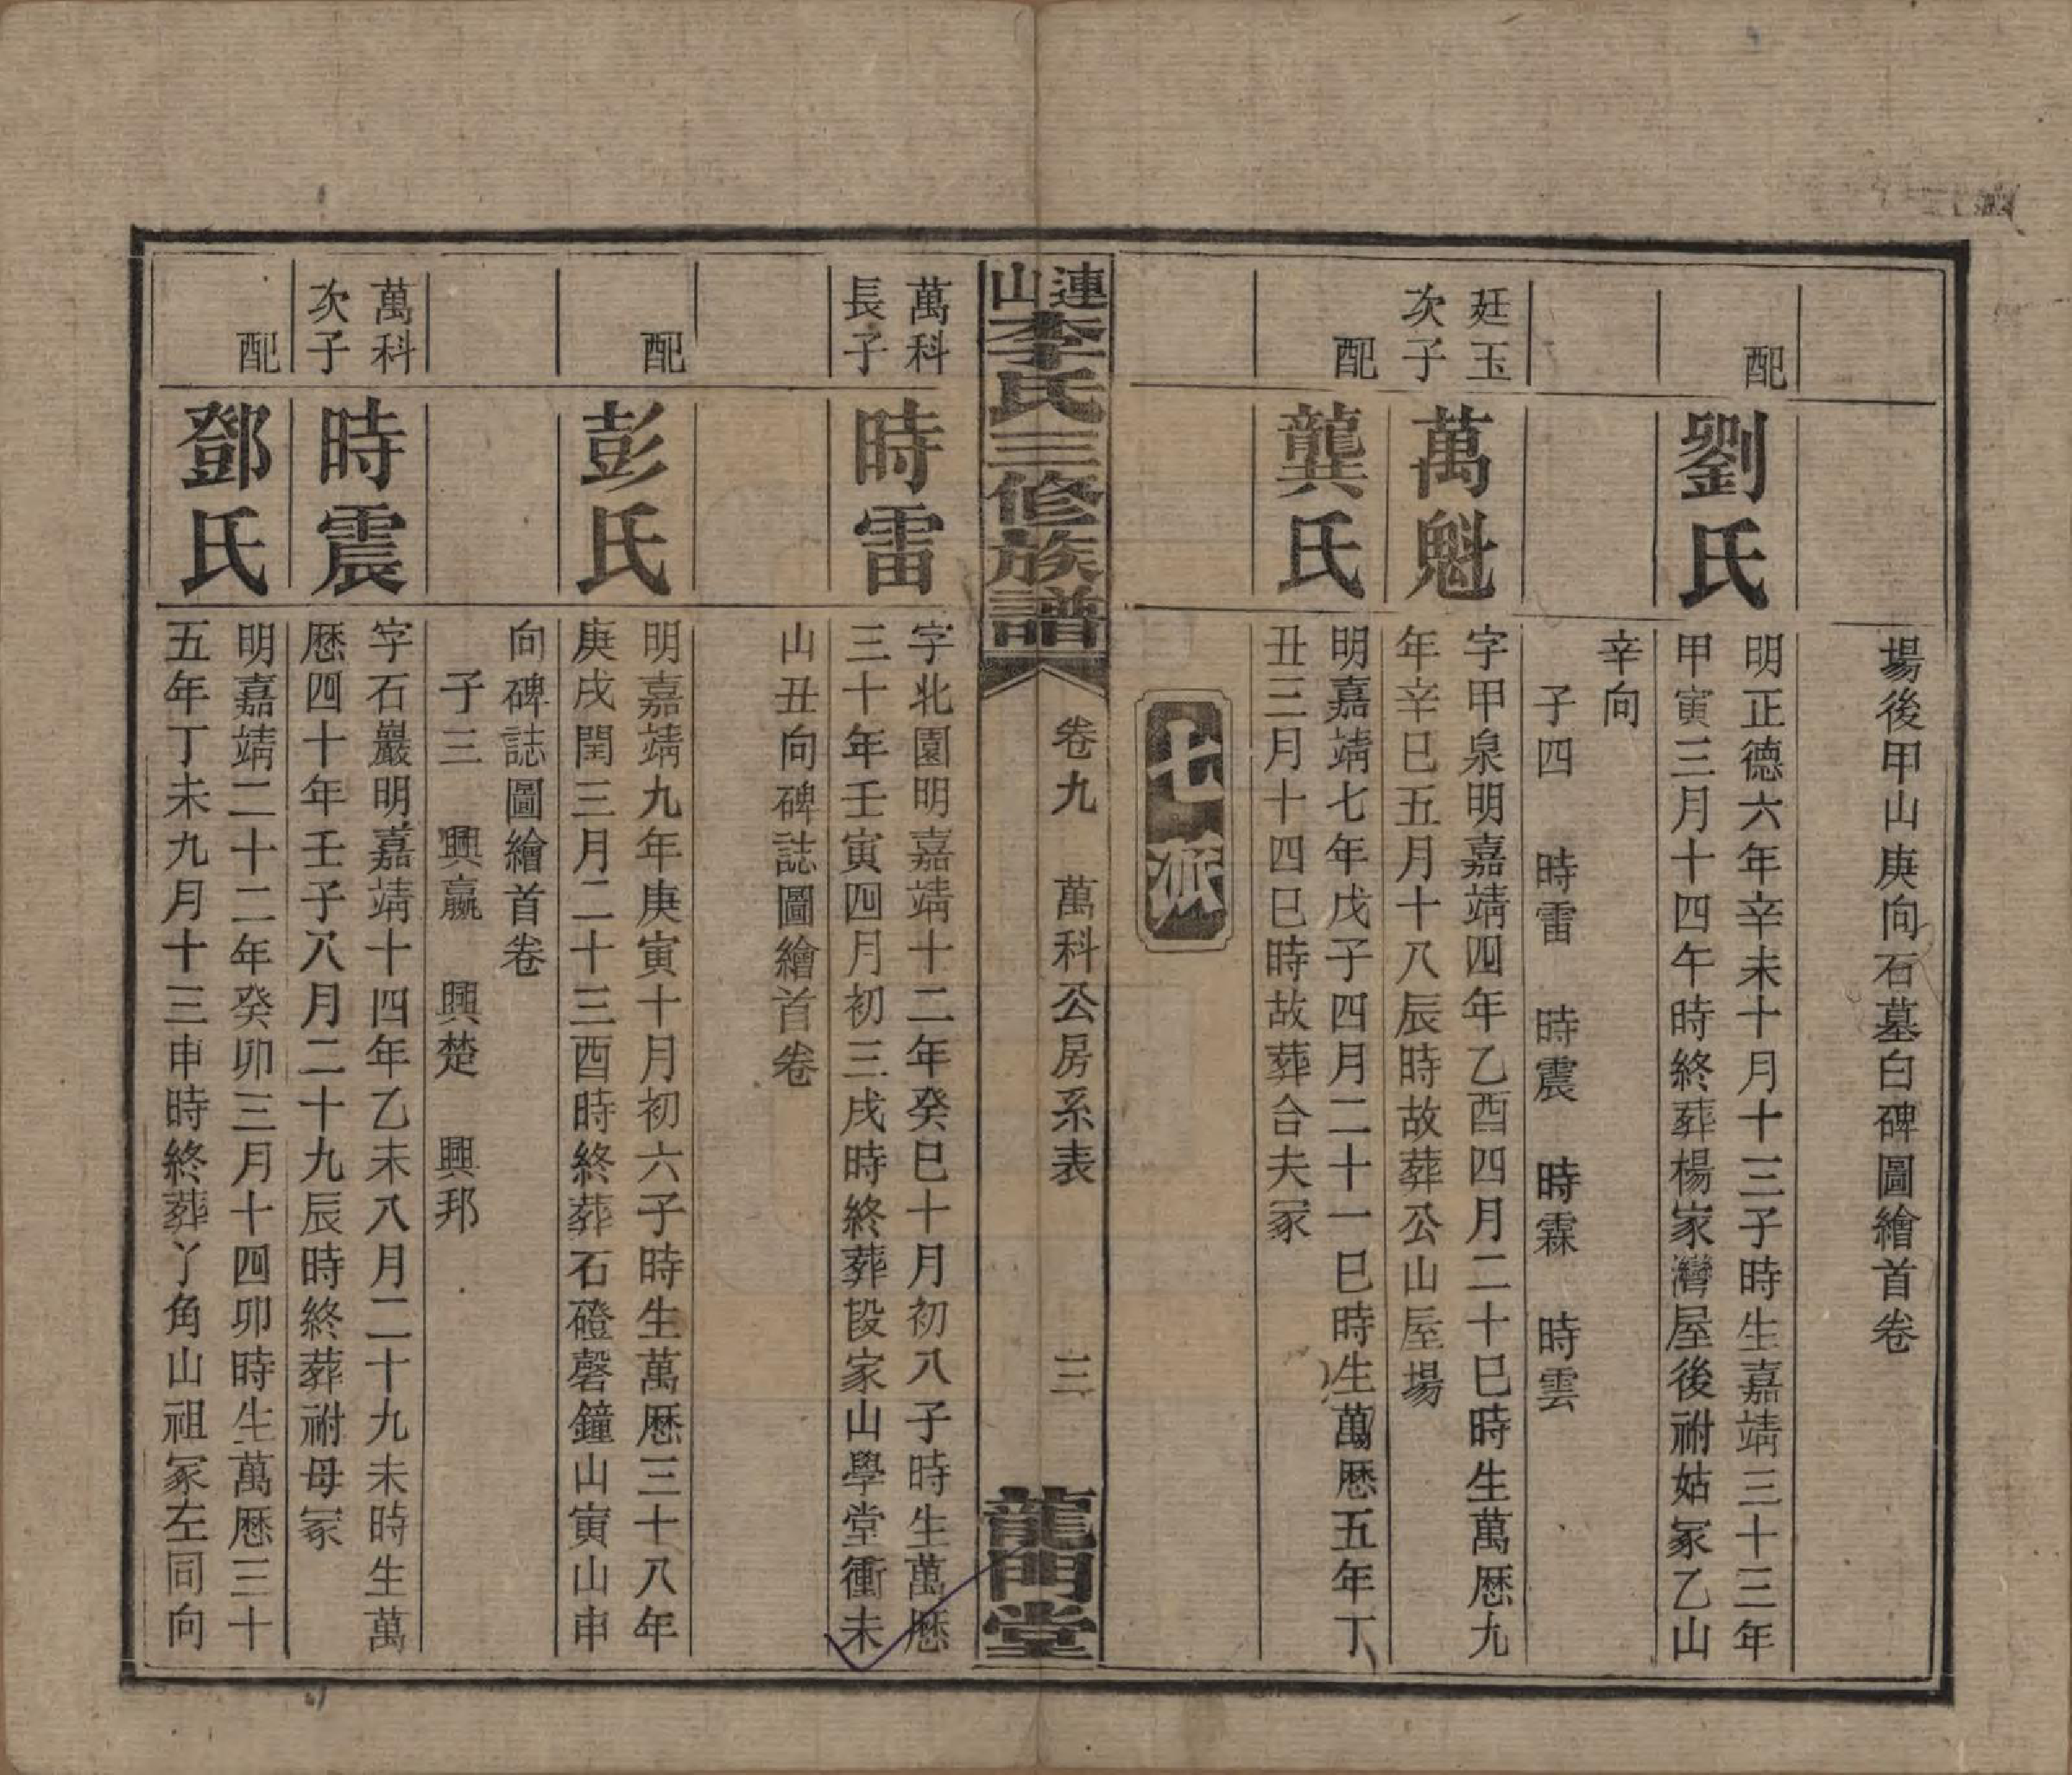 場後甲山庚向石墓白碑圖繪首卷
配
劉氏
明正德六年辛未十月十三子時生嘉靖三十三年
甲寅三月十四午時終葬楊家灣屋後祔姑冢乙山
辛向
子四 時雷 時震 時霖 時雲
廷玉
次子
萬魁
字甲泉明嘉靖四年乙酉四月二十巳時生萬歷九
年辛巳五月十八辰時故葬公山屋場
配
龔氏
明嘉靖七年戊子四月二十一巳時生萬歷五年丁
丑三月十四巳時故葬合夫冢
七派
連山李氏三修族譜
卷九 萬科公房系表 三
龍門堂
萬科
長子
時雷
字北園明嘉靖十二年癸巳十月初八子時生萬歷
三十年壬寅四月初三戌時終葬段家山學堂衝未
山丑向碑誌圖繪首卷
配
彭氏
明嘉靖九年庚寅十月初六子時生萬歷三十八年
庚戌閏三月二十三酉時終葬石磴磬鐘山寅山申
向碑誌圖繪首卷
子三 興嬴 興楚 興邦
萬科
次子
時震
字石巖明嘉靖十四年乙未八月二十九未時生萬
歷四十年壬子八月二十九辰時終葬祔母冢
配
鄧氏
明嘉靖二十二年癸卯三月十四卯時生萬歷三十
五年丁未九月十三申時終葬丫角山祖冢左同向